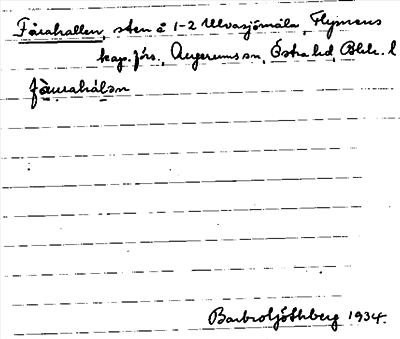 Fårahallen, sten å 1-2 Ulvasjömåla, Flymens
kap.förs., Augerums sn, Östra hd, Blek. l
fårahálən
Barbro Ljöthberg 1934.